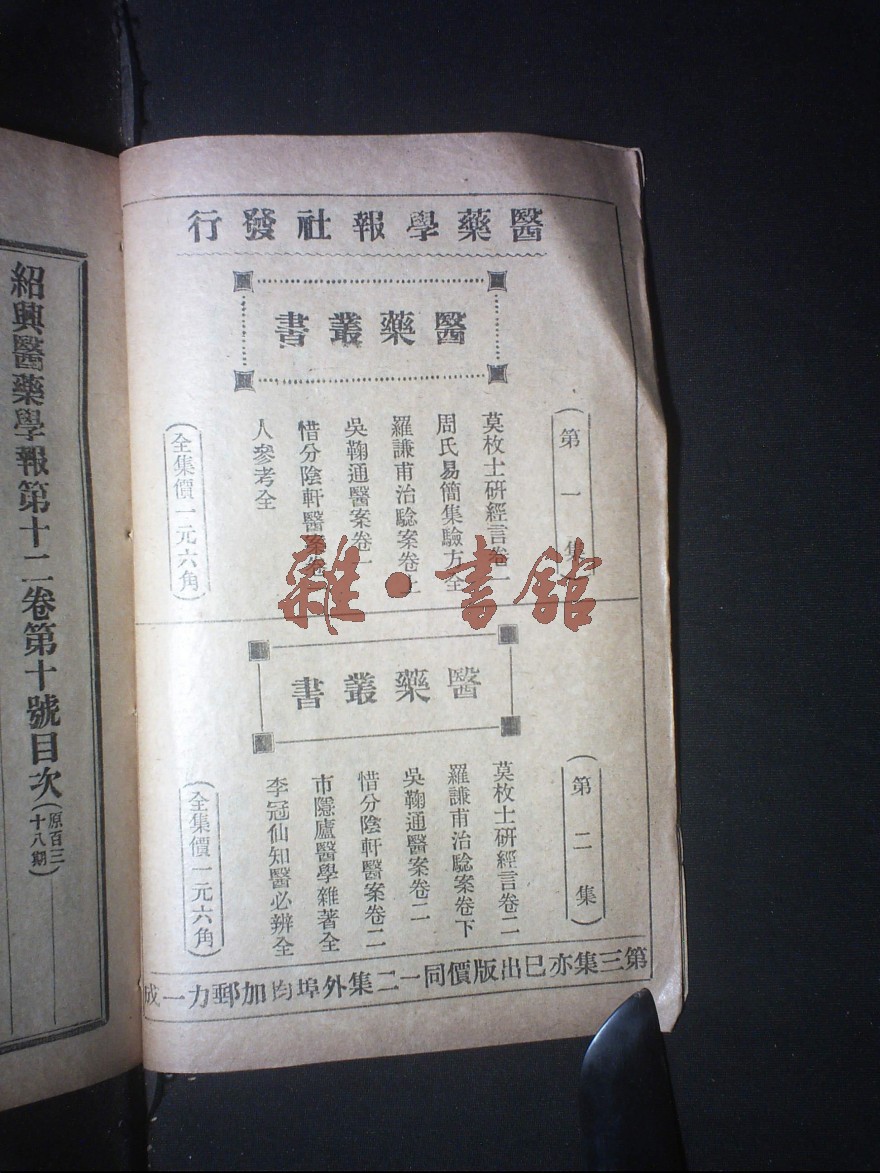 醫藥學報社發行
醫藥叢書
（第一集）
莫枚士研經言卷一
周氏易簡集驗方全
羅謙甫治驗案卷上
吳鞠通醫案卷一
惜分陰軒醫案卷
人參考全
（全集價一元六角）
醫藥叢書
（第二集）
莫枚士研經言卷二
羅謙甫治驗案卷下
吳鞠通醫案卷二
惜分陰軒醫案卷二
市隱廬醫學雜著全
李冠仙知醫必辨全
（全集價一元六角）
第三集亦已出版價同一二集外埠均加郵力一成
紹興醫藥學報第十二卷第十號目次（原百三十八期）
雜·書館